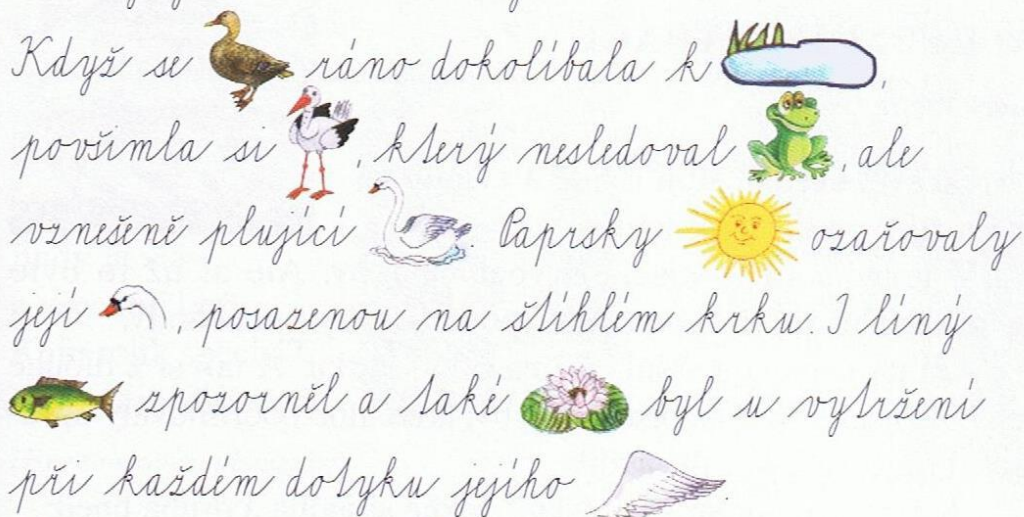 Když se ráno dokolíbala k ,
povšimla si , který nesledoval , ale
vznešeně plující . Paprsky ozařovaly
její , posazenou na štíhlém krku. I líný
zpozorněl a také byl u vytržení
při každém dotyku jejího .